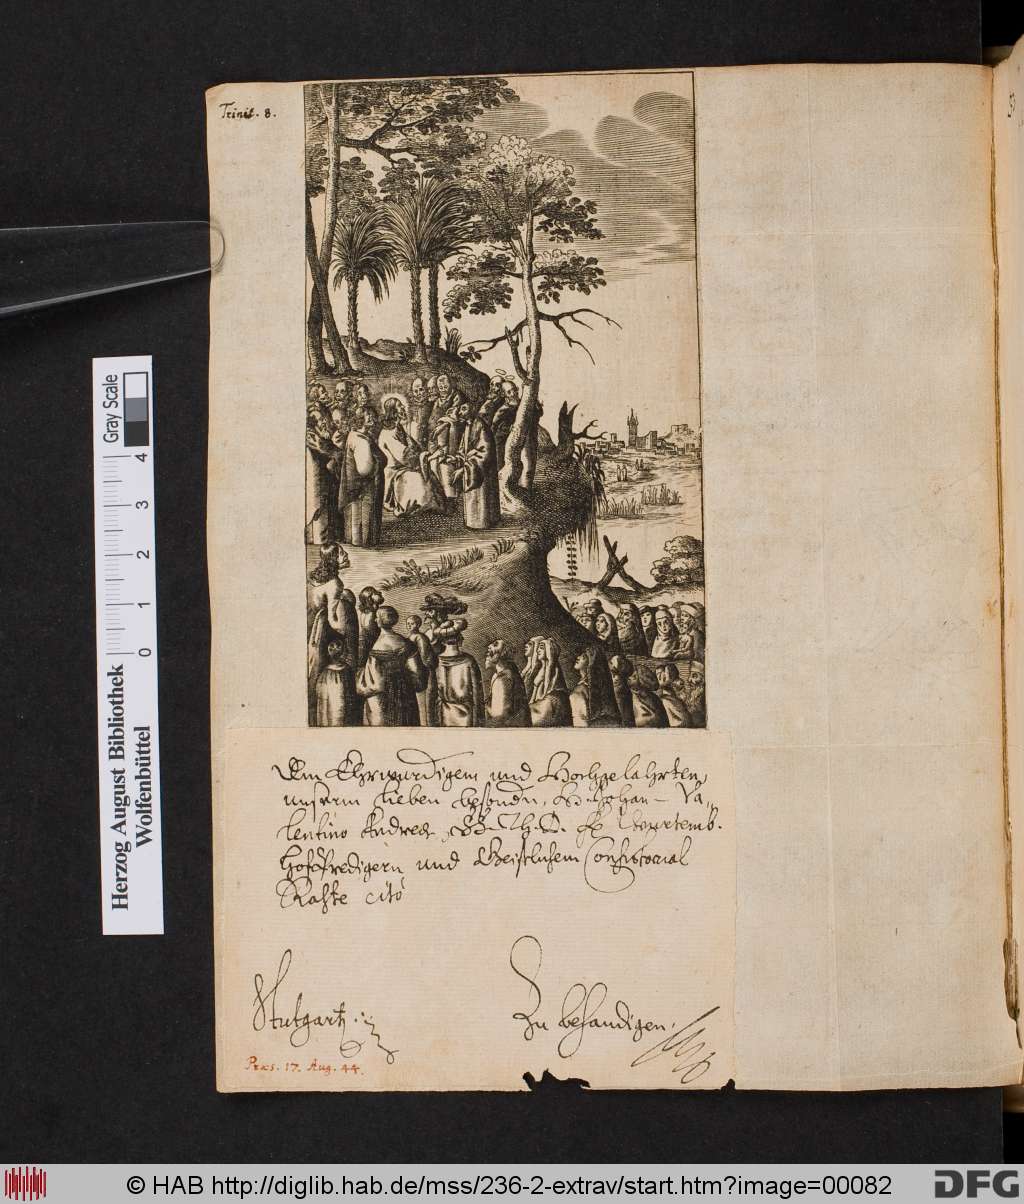 Trinit. 8.
Dem Ehrwürdigem und Hochgelahrten,
unserm lieben besondn. H. Johan- Va-
lentino Andreæ, Th. D. Würtemb.
Hoffpredigern und Geistlichem Consistorial
Rahte cito
Stutgart.
Zu behandigen.
Præs. 17. Aug. 44.
Gray Scale
4
3
2
1
0
Herzog August Bibliothek
Wolfenbüttel
© HAB http://diglib.hab.de/mss/236-2-extrav/start.htm?image=00082
DFG